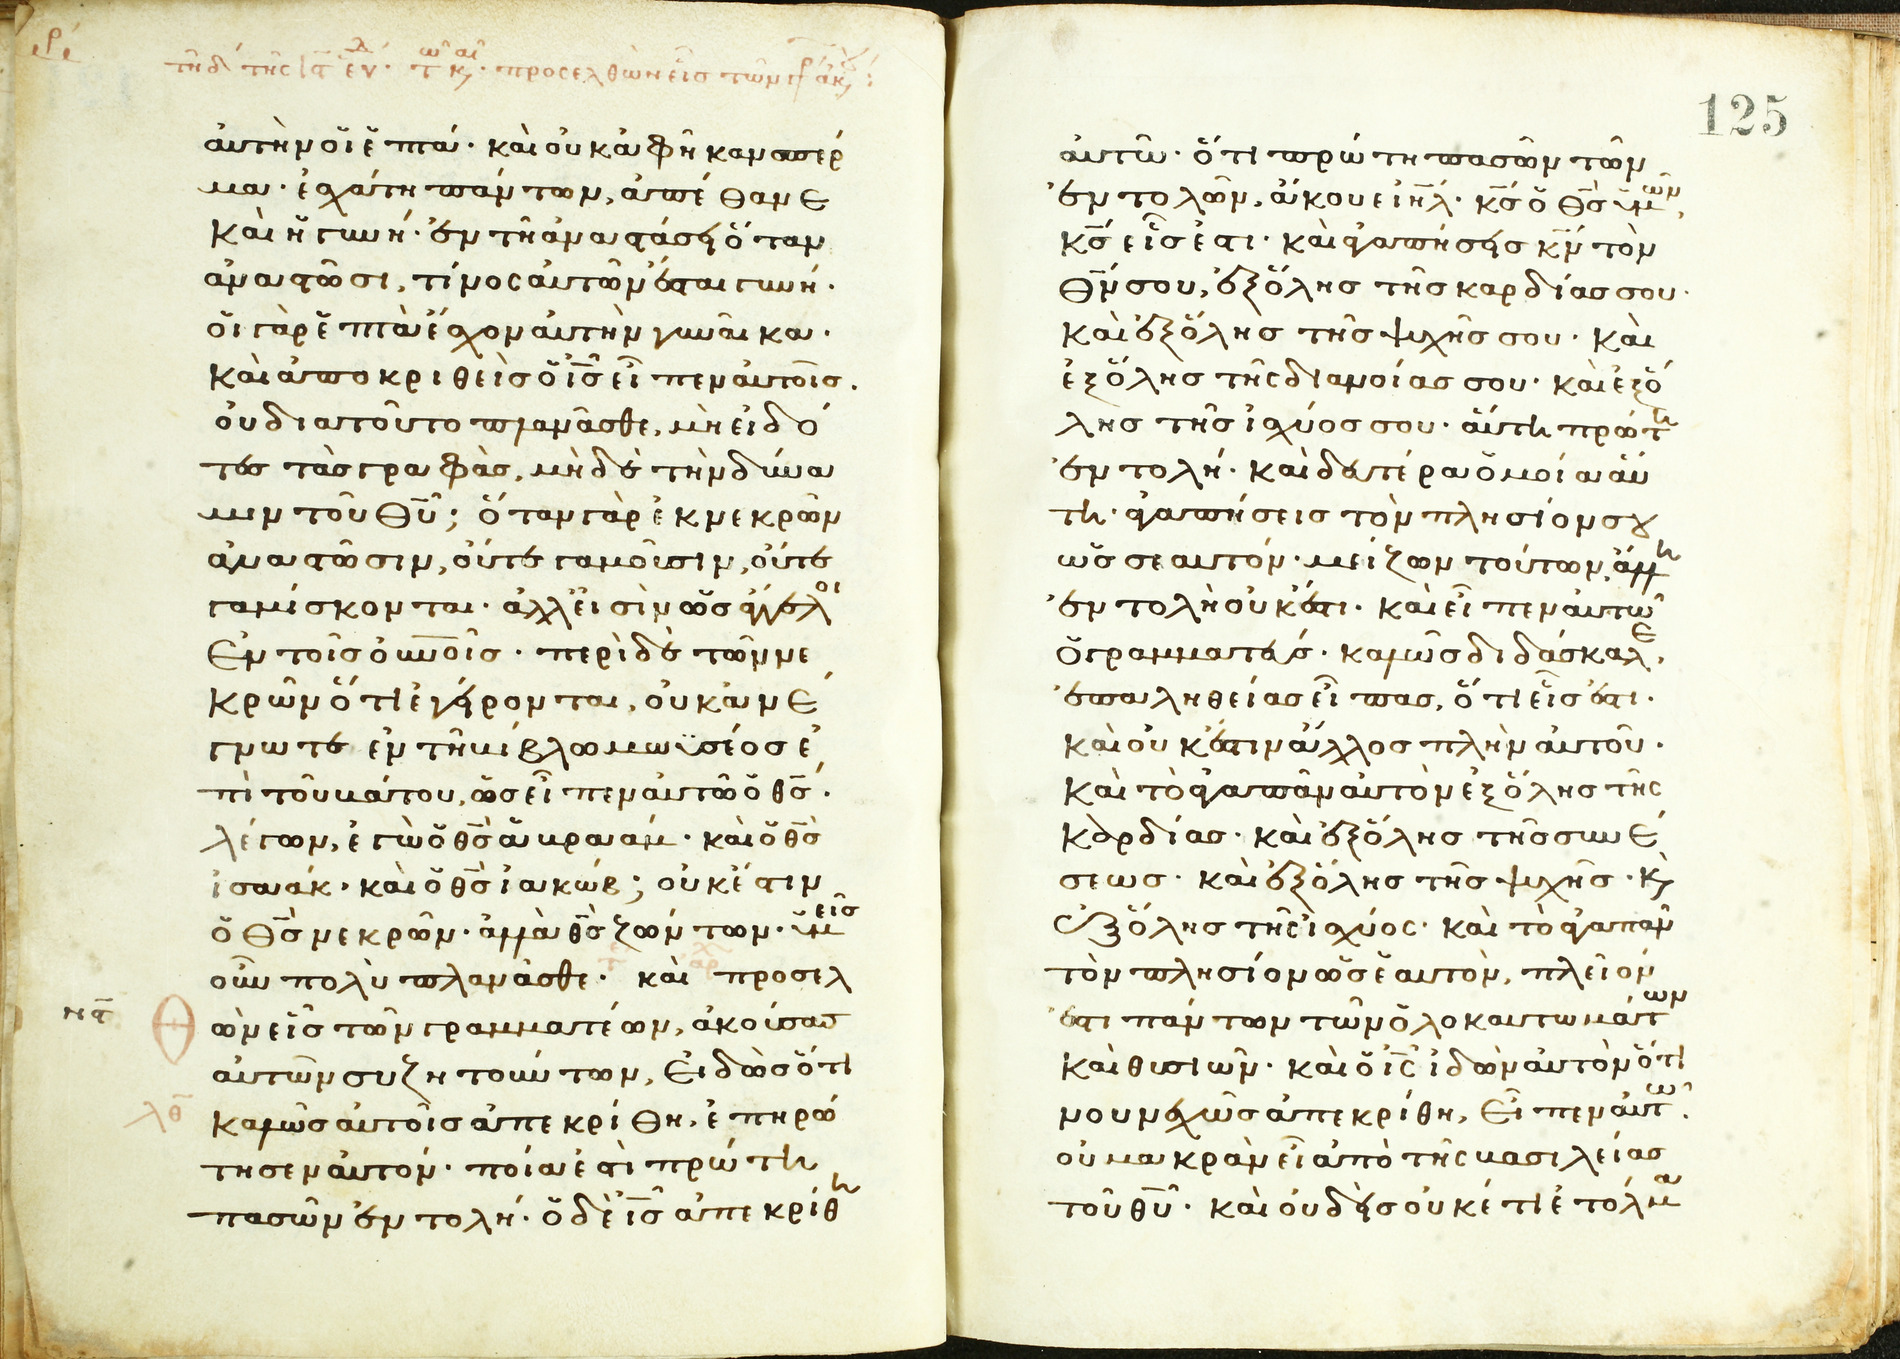 αὐτὴν οἱ ἑπτά· καὶ οὐκ ἀφῆκαν σπέρ
μα· ἐσχάτη πάντων, ἀπέθανε
καὶ ἡ γυνή· ἐν τῇ ἀναστάσει ὅταν
ἀναστῶσι, τίνος αὐτῶν ἔσται γυνή·
οἱ γὰρ ἑπτὰ ἔσχον αὐτὴν γυναῖκα·
καὶ ἀποκριθεὶς ὁ ι̅ς̅ εἶπεν αὐτοῖς.
οὐ διὰ τοῦτο πλανᾶσθε, μὴ εἰδό
τες τὰς γραφὰς, μηδὲ τὴν δύνα
μιν τοῦ θ̅υ̅; ὅταν γὰρ ἐκ νεκρῶν
ἀναστῶσιν, οὔτε γαμοῦσιν, οὔτε
γαμίσκονται· ἀλλ' εἰσὶν ὡς ἄγγελοι
ἐν τοῖς ο̅υ̅ν̅οῖς· περὶ δὲ τῶν νε
κρῶν ὅτι ἐγείρονται, οὐκ ἀνέ
γνωτε ἐν τῇ βίβλω μωϋσέος ἐ
πὶ τοῦ βάτου, ὡς εἶπεν αὐτῶ ὁ θ̅ς̅·
λέγων, ἐγὼ ὁ θ̅ς̅ ἁβραάμ· καὶ ὁ θ̅ς̅
ἰσαάκ· καὶ ὁ θ̅ς̅ ἰακώβ; οὐκ ἔστιν
ὁ θ̅ς̅ νεκρῶν· ἀλλὰ θ̅ς̅ ζώντων· ὑμεῖς
οὖν πολὺ πλανᾶσθε· καὶ προσελ
θὼν εἷς τῶν γραμματέων, ἀκούσας
αὐτῶν συζητούντων, εἰδὼς ὅτι
καλῶς αὐτοῖς ἀπεκρίθη, ἐπηρώ
τησεν αὐτόν· ποία ἐστὶ πρώτη
πασῶν ἐντολή· ὁ δὲ ι̅ς̅ ἀπεκρίθη
125
αὐτῶ· ὅτι πρώτη πασῶν τῶν
ἐντολῶν, ἄκουε ι̅η̅λ̅· κ̅ς̅ ὁ θ̅ς̅ ὑμῶν,
κ̅ς̅ εἷς ἐστι· καὶ ἀγαπήσεις κ̅ν̅ τὸν
θ̅ν̅ σου, ἐξ ὅλης τῆς καρδίας σου·
καὶ ἐξ ὅλης τῆς ψυχῆς σου· καὶ
ἐξ ὅλης τῆς διανοίας σου· καὶ ἐξ ὅ
λης τῆς ἰσχύος σου· αὕτη πρώτη
ἐντολή· καὶ δευτέρα ὁμοία αὕ
τη· ἀγαπήσεις τὸν πλησίον σου
ὡς σεαυτόν· μείζων τούτων, ἄλλη
ἐντολὴ οὐκ ἔστι· καὶ εἶπεν αὐτῶ
ὁ γραμματεύς· καλῶς διδάσκαλε,
ἐπ' ἀληθείας εἶπας, ὅτι εἷς ἐστι·
καὶ οὐκ ἔστιν ἄλλος πλὴν αὐτοῦ·
καὶ τὸ ἀγαπᾶν αὐτὸν ἐξ ὅλης τῆς
καρδίας· καὶ ἐξ ὅλης τῆς συνέ
σεως· καὶ ἐξ ὅλης τῆς ψυχῆς· κ̀
ἐξ ὅλης τῆς ἰσχύος· καὶ τὸ ἀγαπᾶν
τὸν πλησίον ὡς ἑαυτὸν, πλεῖον
ἐστι πάντων τῶν ὁλοκαυτωμάτων
καὶ θυσιῶν· καὶ ὁ ι̅ς̅ ἰδὼν αὐτὸν ὅτι
νουνεχῶς ἀπεκρίθη, εἶπεν αὐτῶ·
οὐ μακρὰν εἶ ἀπὸ τῆς βασιλείας
τοῦ θ̅υ̅· καὶ οὐδεὶς οὐκέτι ἐτόλμα